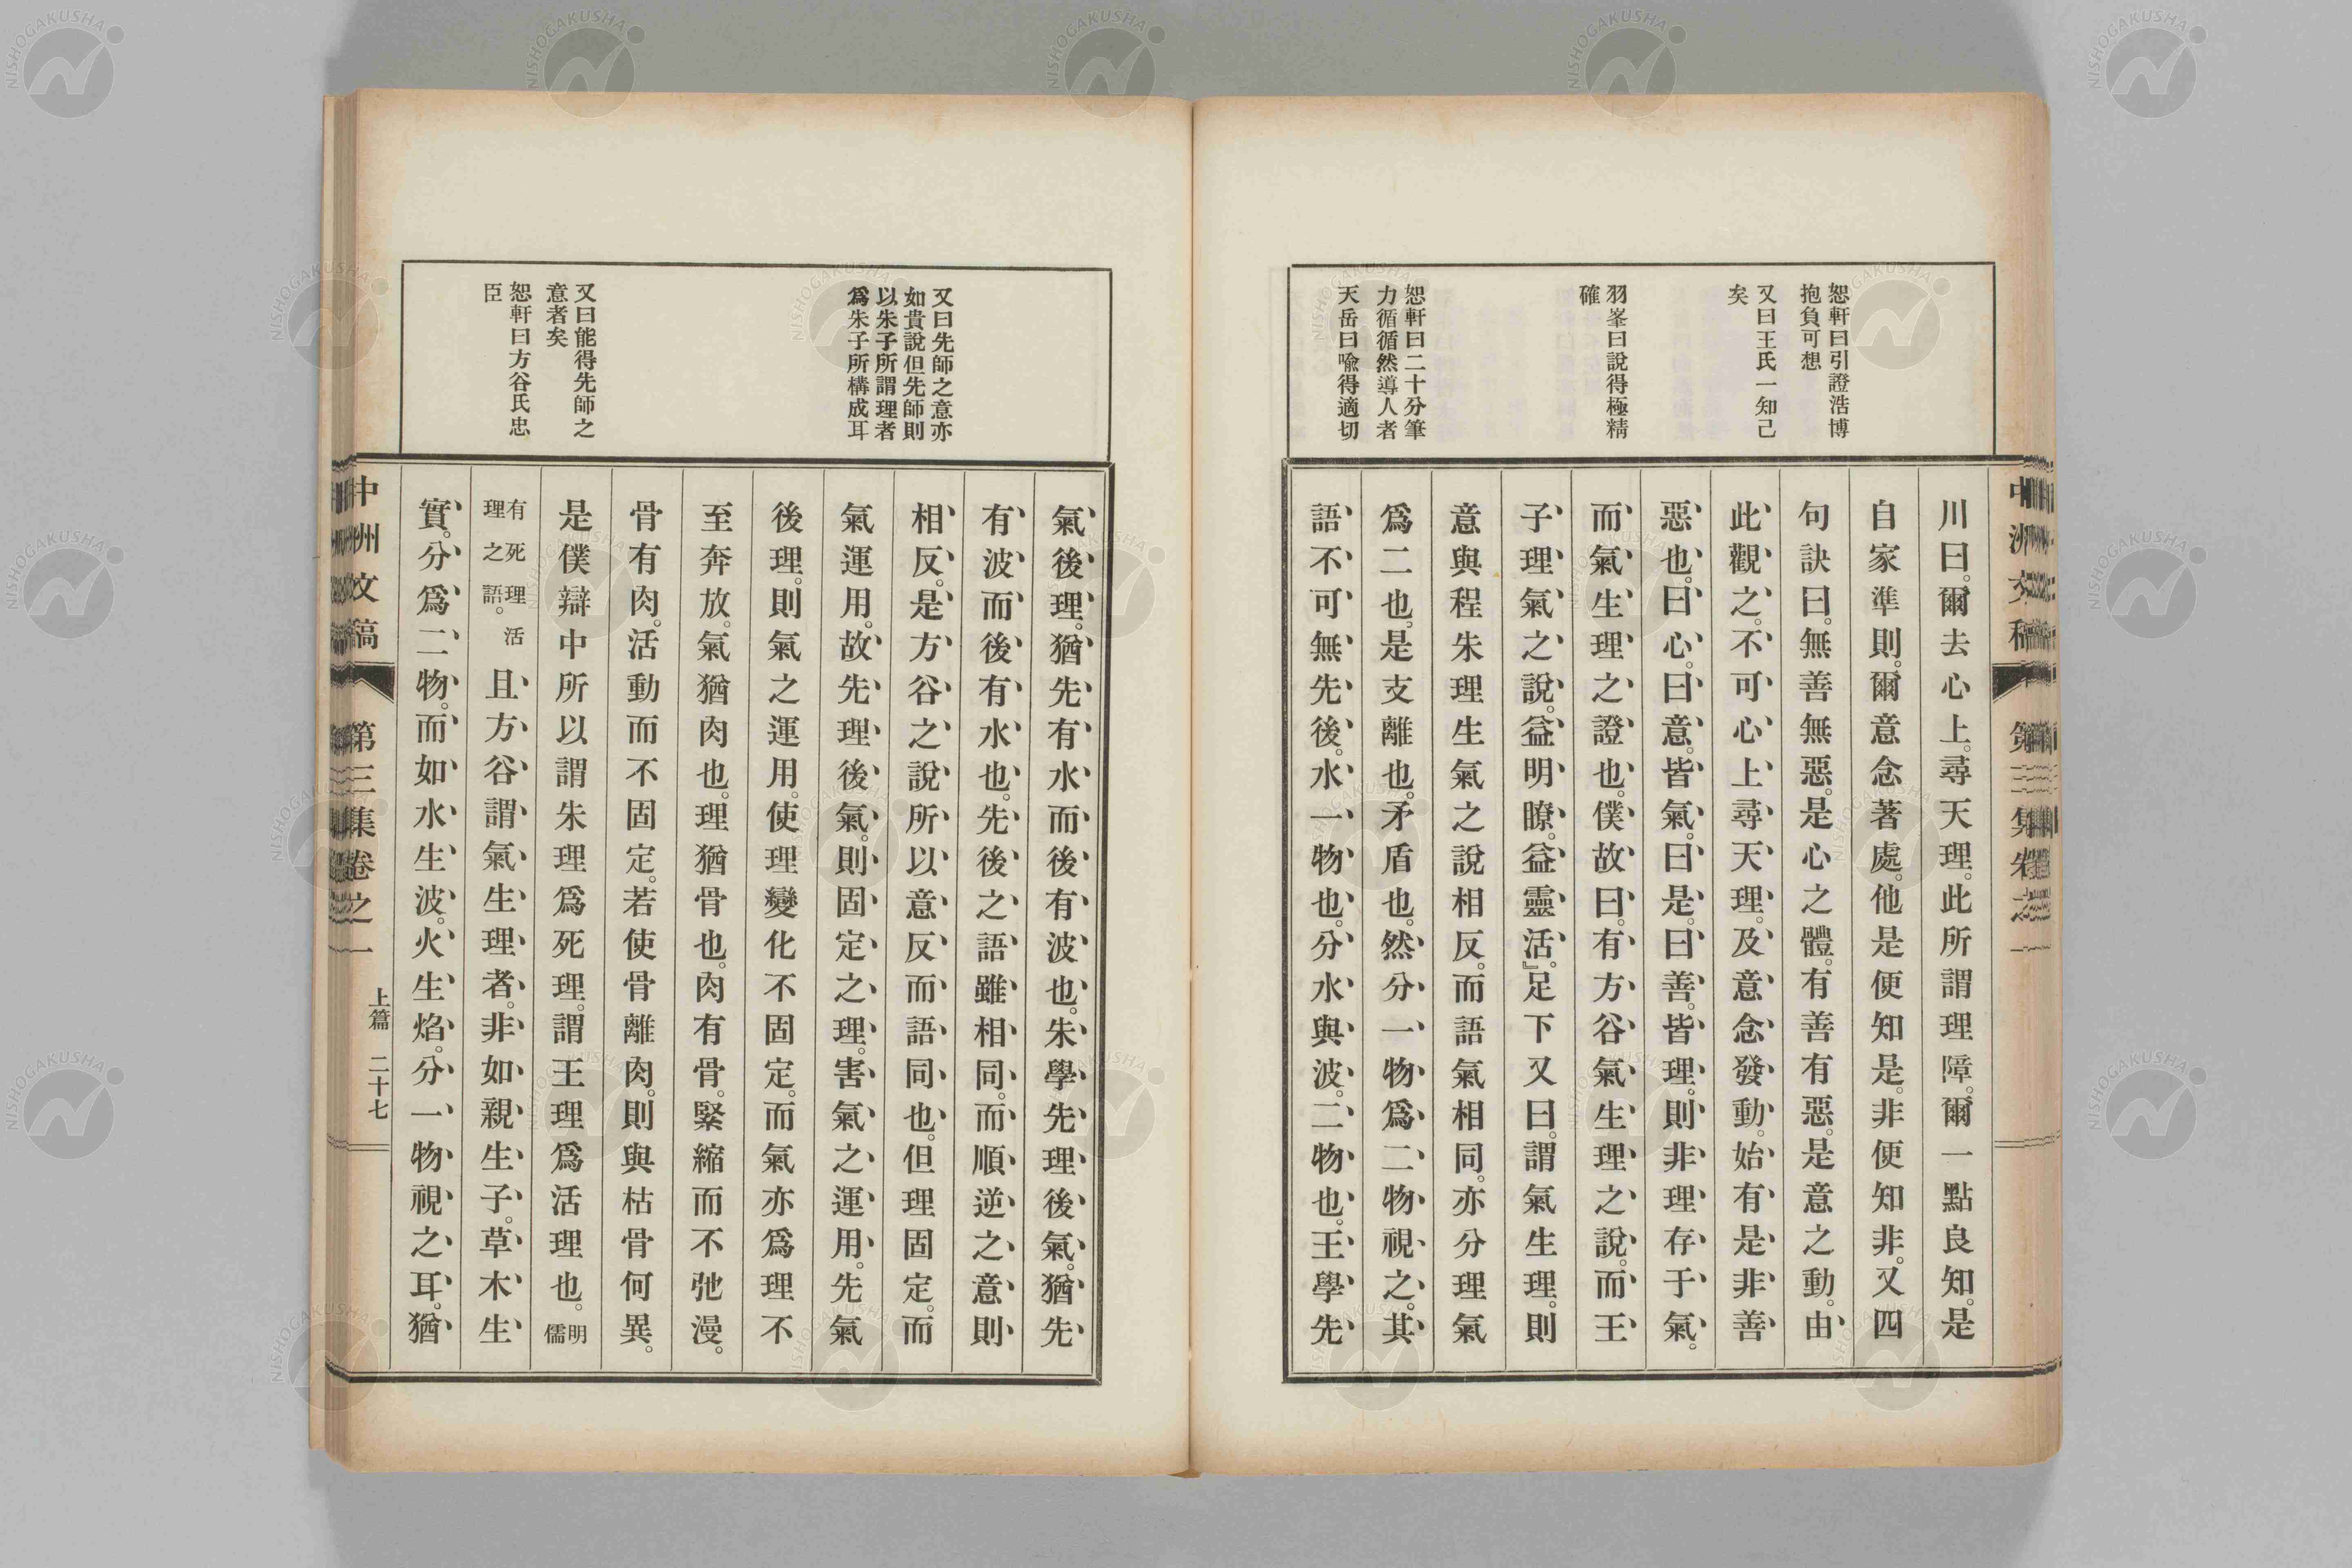 恕軒曰引證浩博
抱負可想
又曰王氏一知己
矣
羽峯曰說得極精
確
恕軒曰二十分筆
力循循然導人者
天岳曰喩得適切
川曰。爾去心上。尋天理。此所謂理障。爾一點良知。是
自家準則。爾意念著處。他是便知是。非便知非。又四
句訣曰。無善無惡。是心之體。有善有惡。是意之動。由
此觀之。不可心上尋天理。及意念發動。始有是非善
惡也。曰心。曰意。皆氣。曰是。曰善。皆理。則非理存于氣。
而氣生理之證也。僕故曰。有方谷氣生理之說。而王
子理氣之說。益明瞭。益靈活。』足下又曰。謂氣生理。則
意與程朱理生氣之說相反。而語氣相同。亦分理氣
爲二也。是支離也。矛盾也。然分一物爲二物視之。其
語不可無先後。水一物也。分水與波。二物也。王學先
又曰先師之意亦
如貴說但先師則
以朱子所謂理者
爲朱子所構成耳
又曰能得先師之
意者矣
恕軒曰方谷氏忠
臣
氣後理。猶先有水而後有波也。朱學先理後氣。猶先
有波而後有水也。先後之語雖相同。而順逆之意則
相反。是方谷之說所以意反而語同也。但理固定。而
氣運用。故先理後氣。則固定之理。害氣之運用。先氣
後理。則氣之運用。使理變化不固定。而氣亦爲理不
至奔放。氣猶肉也。理猶骨也。肉有骨。緊縮而不弛漫。
骨有肉。活動而不固定。若使骨離肉。則與枯骨何異。
是僕辯中所以謂朱理爲死理。謂王理爲活理也。明儒
有死理活理之語。且方谷謂氣生理者。非如親生子。草木生
實。分爲二物。而如水生波。火生焰。分一物視之耳。猶
中洲文稿 第三集卷之一 上篇 二十七
NISHOGAKUSHA